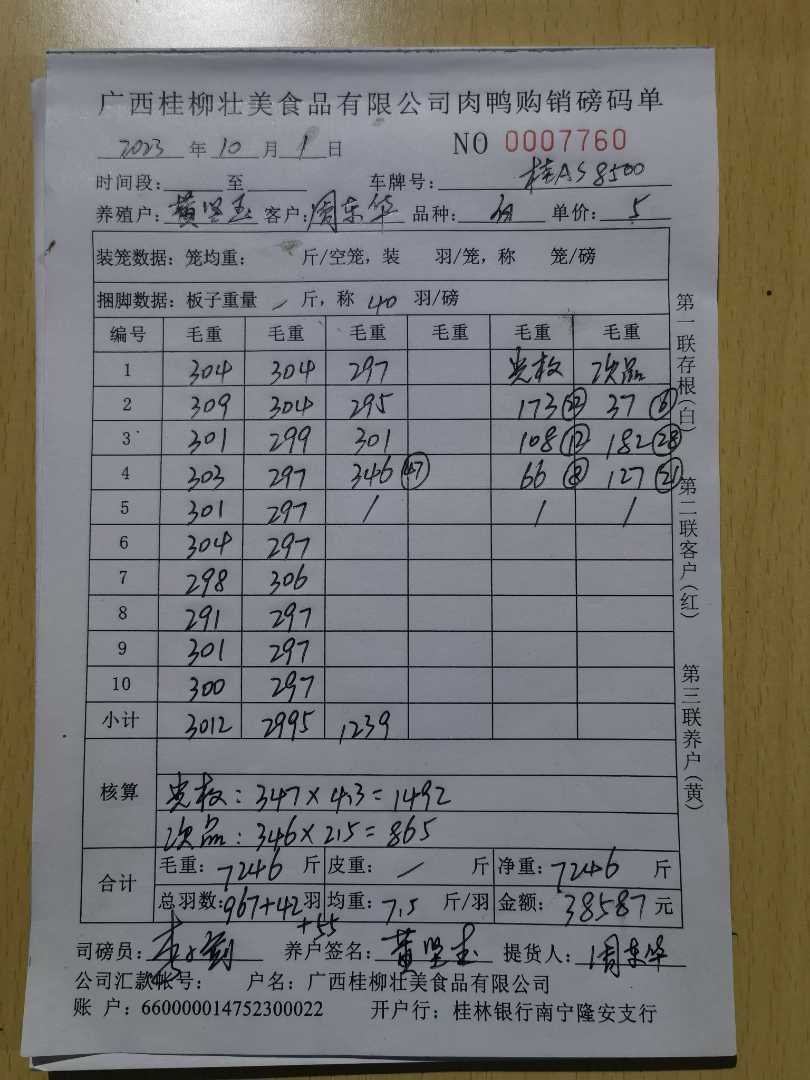 广西桂柳壮美食品有限公司肉鸭购销磅码单
2023 年 10 月 1 日 NO 0007760
时间段: 至 车牌号: 桂AS8500
养殖户: 黄坚玉 客户: 周东华 品种: 单价: 5
装笼数据: 笼均重: 斤/空笼, 装 羽/笼, 称 笼/磅
捆脚数据: 板子重量 / 斤, 称 40 羽/磅
编号 毛重 毛重 毛重 毛重 毛重 毛重
1 304 304 297 光板 次品
2 309 304 295 173 22 37 6
3 301 299 301 108 12 182 28
4 303 297 346 47 66 8 127 21
5 301 297 / / /
6 304 297
7 298 306
8 291 297
9 301 297
10 300 297
小计 3012 2995 1239
核算
光板: 347×4.3=1492
次品: 346×2.5=865
合计
毛重: 7246 斤 皮重: / 斤 净重: 7246 斤
总羽数: 967+42 羽 均重: 7.5 斤/羽 金额: 38587 元
+55
司磅员: 养户签名: 黄坚玉 提货人: 周东华
公司汇款帐号: 户名: 广西桂柳壮美食品有限公司
账 户: 660000014752300022 开户行: 桂林银行南宁隆安支行
第一联存根(白)
第二联客户(红)
第三联养户(黄)